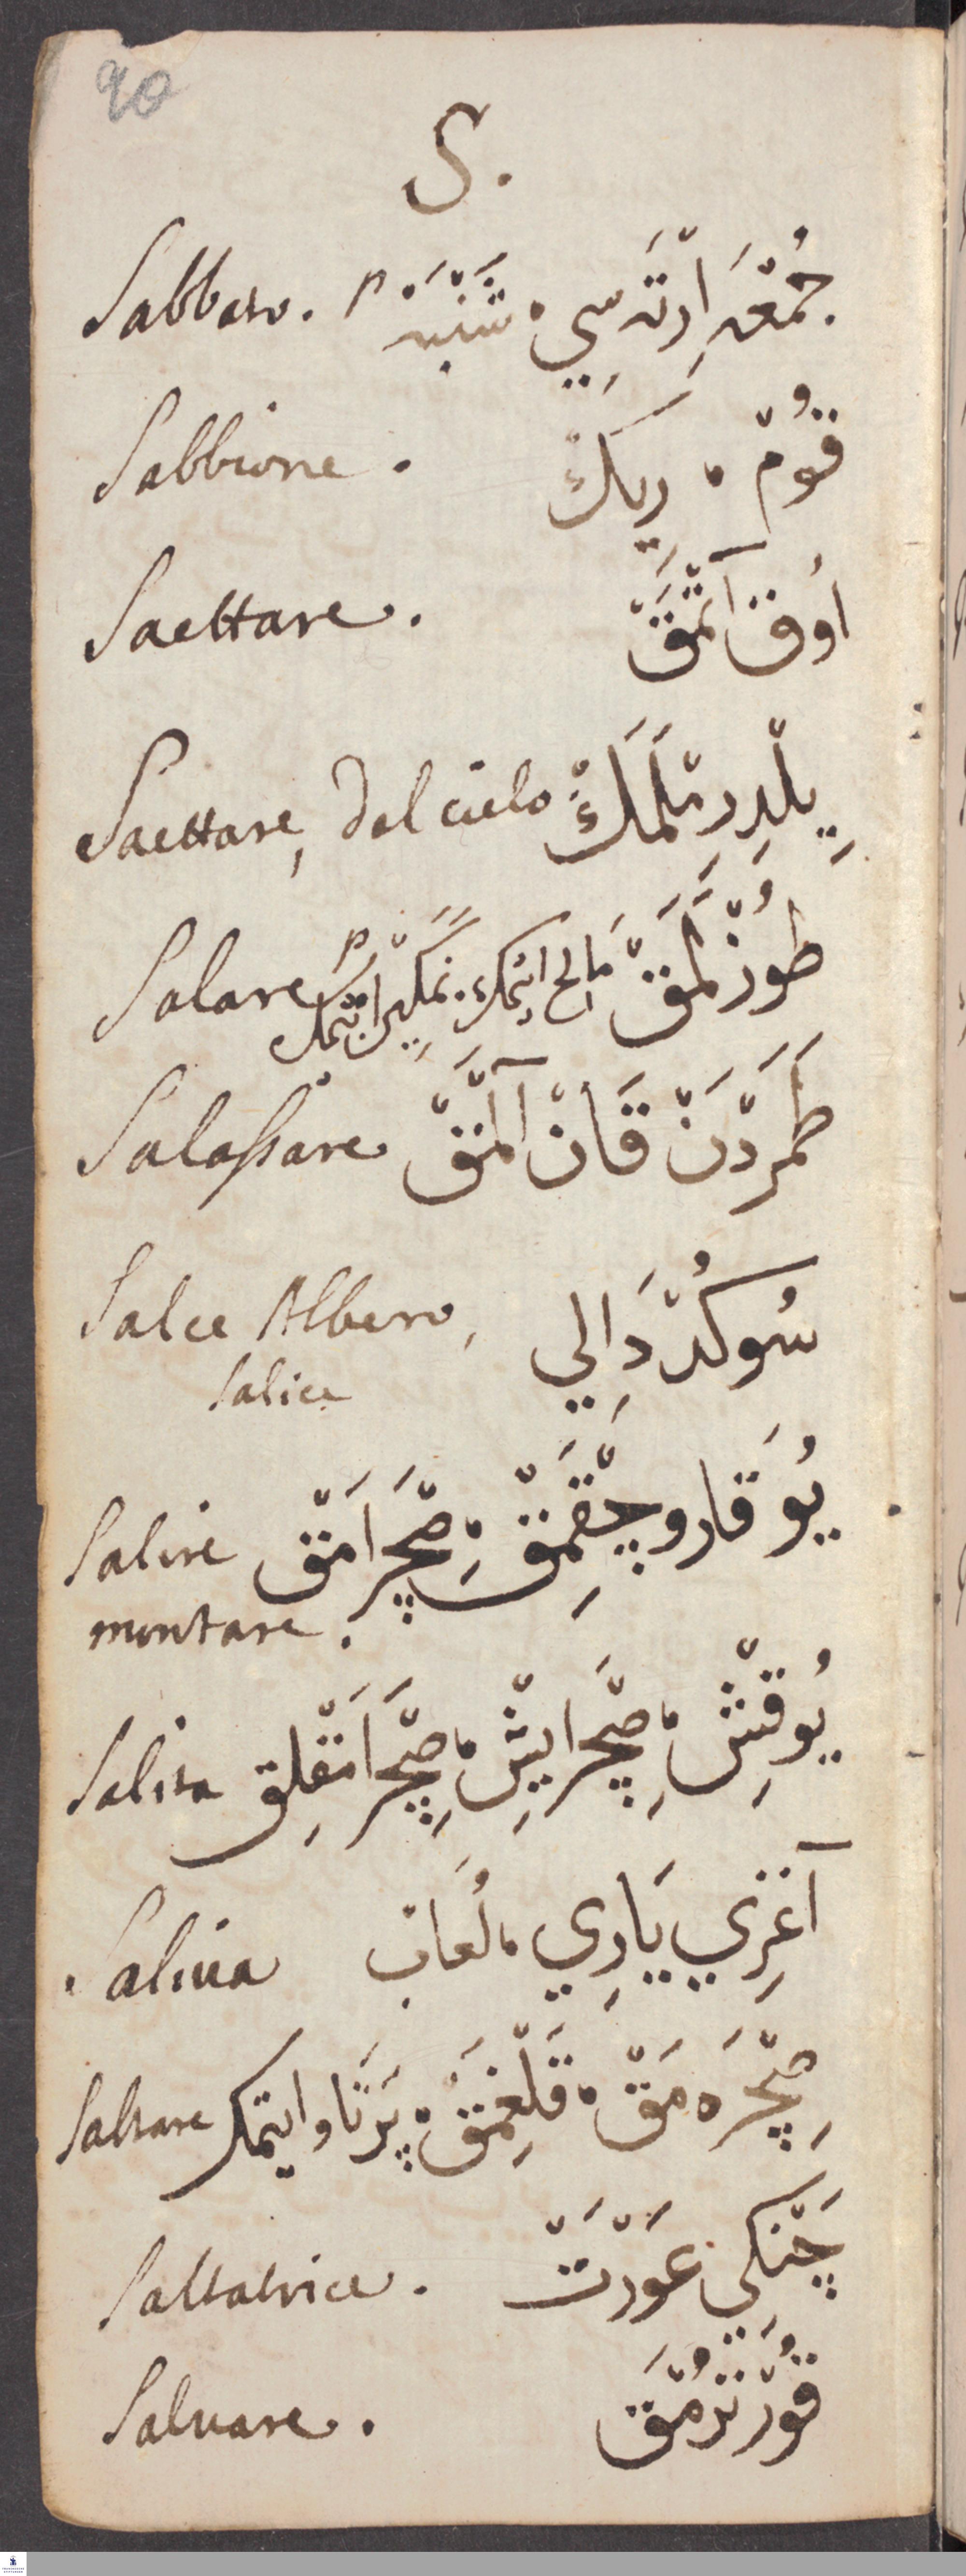 90
S.
Sabbato. p جُمْعَه اِرْتَه سِي · شَنْبَه
Sabbione. قُومْ · رِيكْ
Saettare. اُوقْ آتْمَقْ
Saettare, dal cielo يِلْدِرِمْلَمَكْ
Salare p طُوزْلَمَقْ مَالِح ايتمك · نمكين ايتمك
Salassare طَمَرْدَنْ قَانْ آلْمَقْ
Salce Albero, سُوكُدْ دَالِي
Salice
Salire يُوقَارو چِقْمَقْ · صِچْرَامَقْ
montare.
Salita يُوقِشْ · صِچْرَايِشْ · صِچْرَامَقْلِق
Saliua آغِزِي يَارِي · لُعَابْ
Saltare صِچْرَه مَقْ · قَلْغِمَقْ · پَرْتَاو ايتمك
Saltatrice. چَنْكِي عَوْرَتْ
Saluare. قُورْتُرْمَقْ